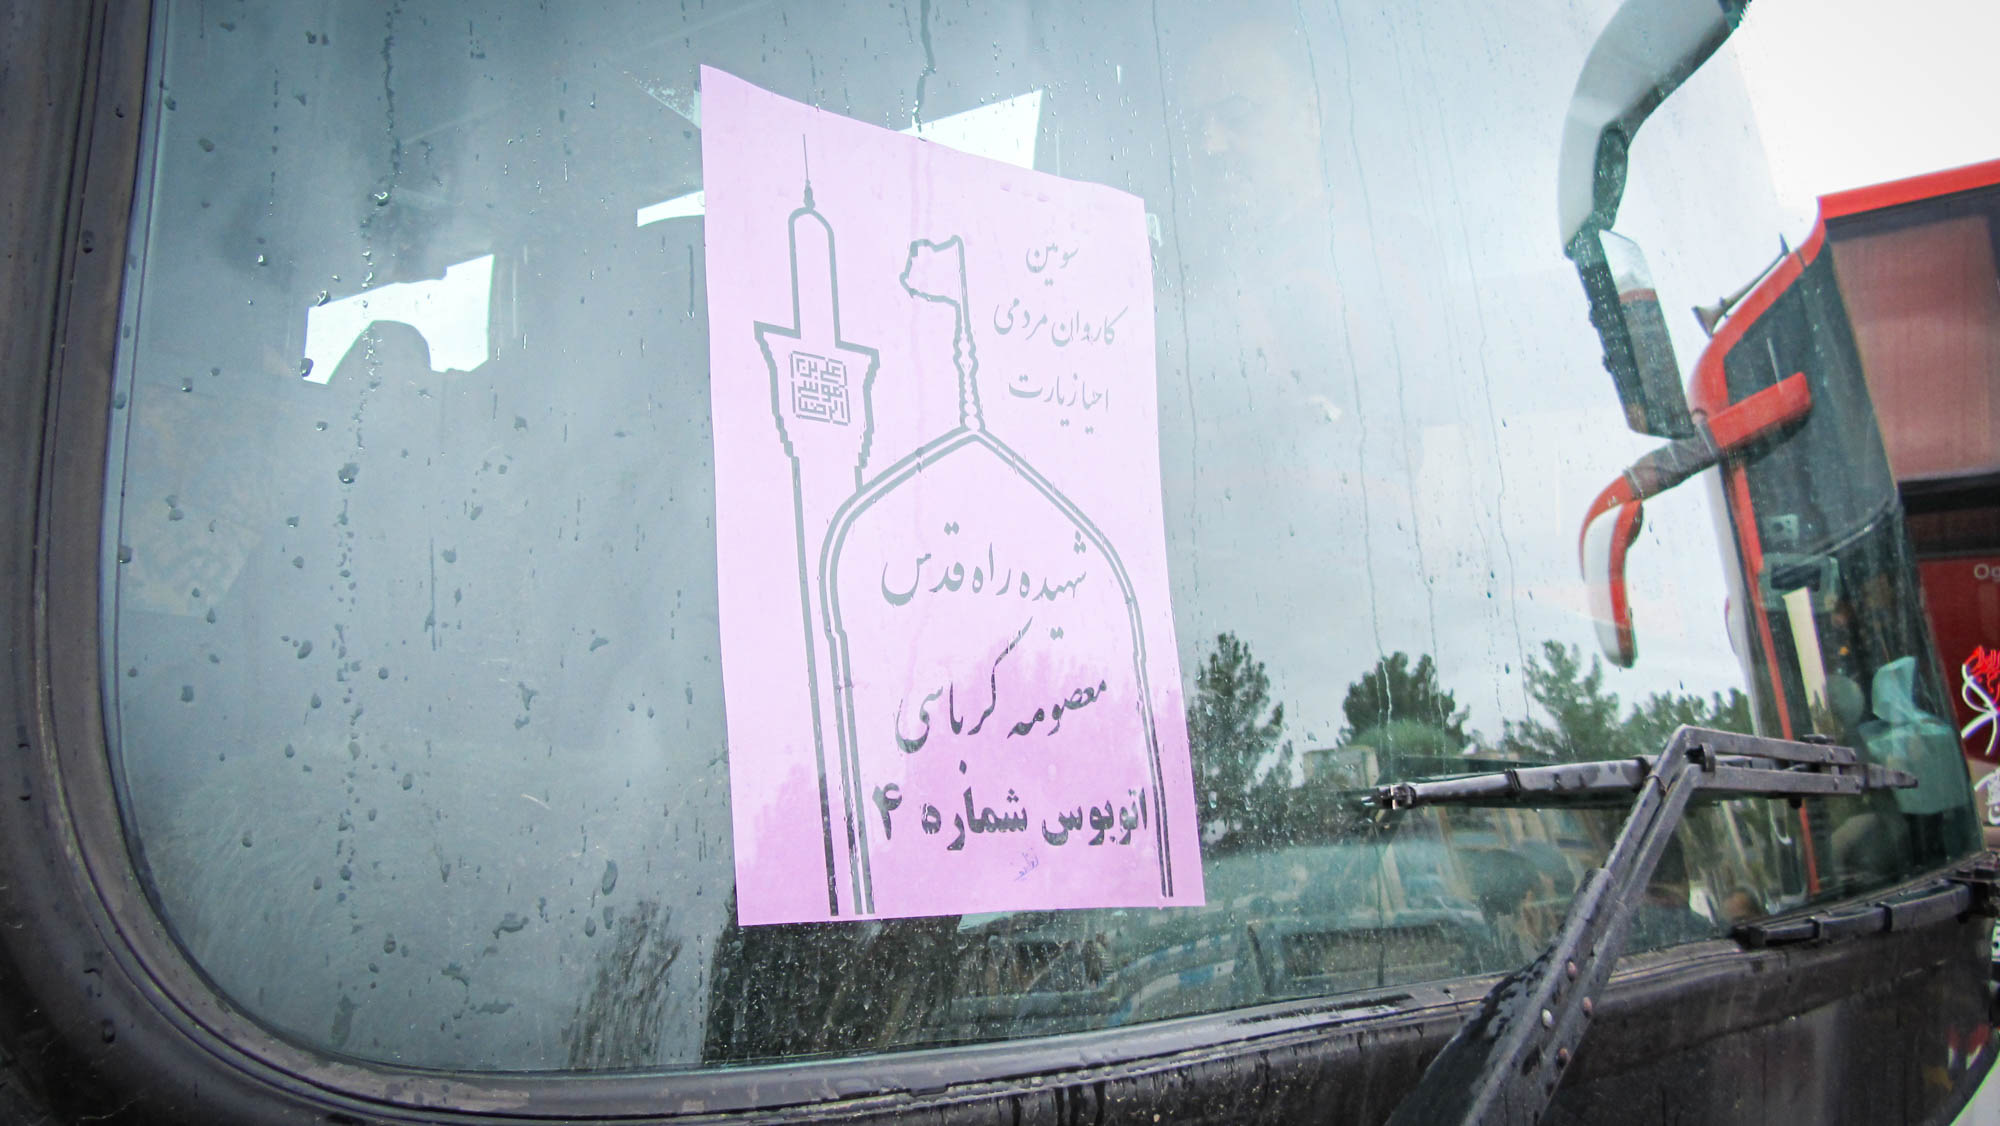 سومین
کاروان مردمی
احیا زیارت
شهیده راه قدس
معصومه کرباسی
اتوبوس شماره ۴
Og